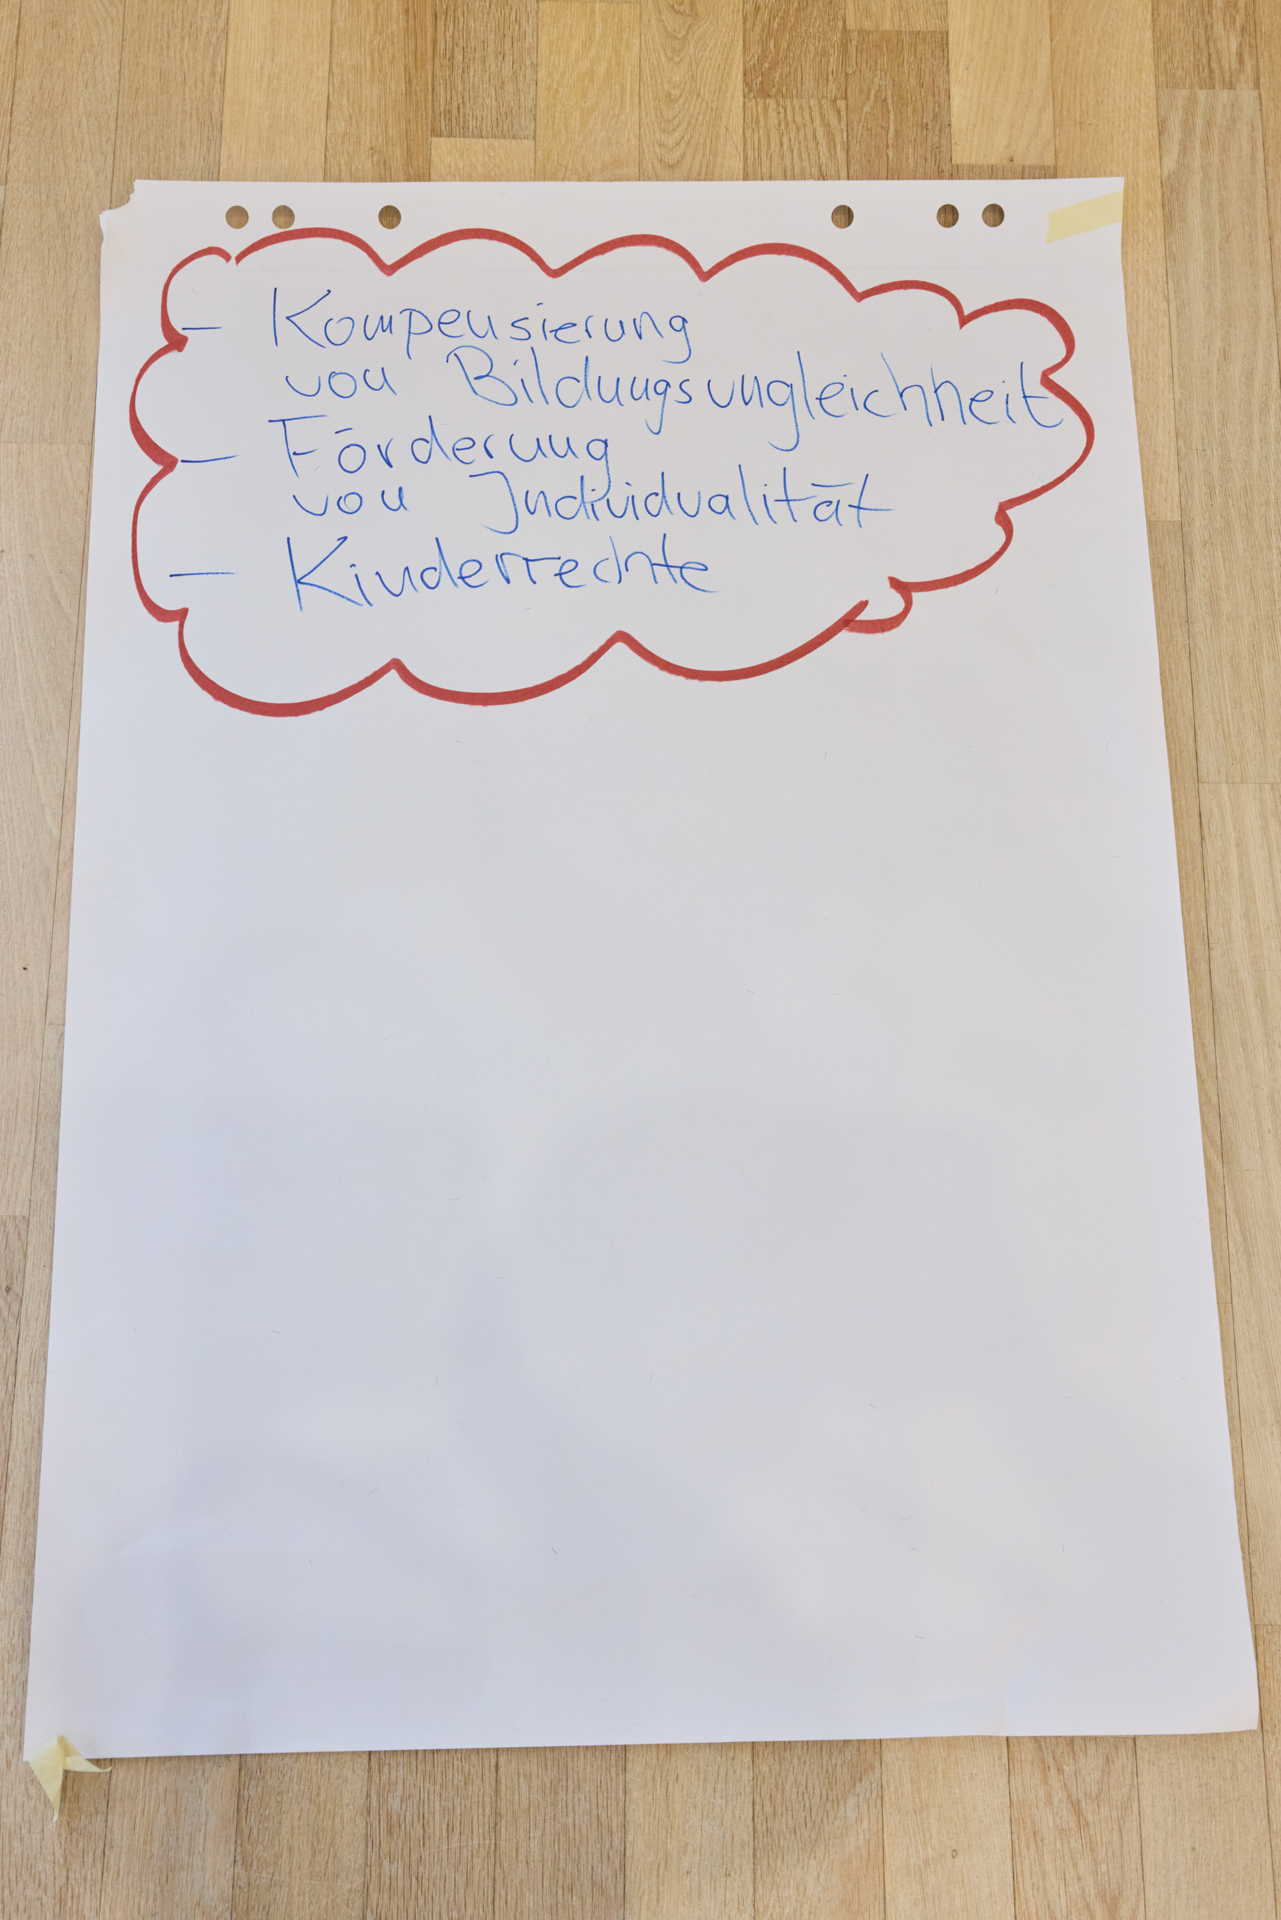 - Kompensierung
von Bildungsungleichheit
- Förderung
von Individualität
- Kinderrechte